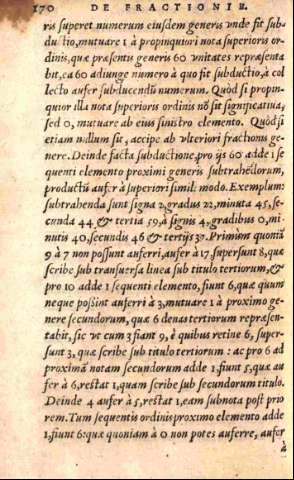 170 DE FRACTIONIB.
ris superet numerum eiusdem generis vnde fit sub-
ductio, mutuare 1 à propinquiori nota superioris or-
dinis, quæ præsentis generis 60 vnitates repræsenta
bit, ea 60 adiunge numero à quo fit subductio, à col
lecto aufer subducendũ numerum. Quòd si propin-
quior illa nota superioris ordinis nõ sit significatiua,
sed 0, mutuare ab eius sinistro elemento. Quòd si
etiam nullum sit, accipe ab vlteriori fractionis ge-
nere. Deinde facta subductione, pro ijs 60 adde 1 se
quenti elemento proximi generis subtrahēdorum,
productũ aufer à superiori simili modo. Exemplum:
subtrahenda sunt signa 2, gradus 22, minuta 45, se-
cunda 44 & tertia 59, à signis 4, gradibus 0, mi-
nutis 40, secundis 46 & tertijs 37. Primùm quoniã
9 à 7 non possunt auferri, aufer à 17 supersunt 8, quæ
scribe sub transuersa linea sub titulo tertiorum, &
pro 10 adde 1 sequenti elemento, fiunt 6, quæ quum
neque possint auferri à 3, mutuare 1 à proximo ge-
nere secundorum, quæ 6 denas tertiorum repræsen-
tabit, sic vt cum 3 fiant 9, è quibus retine 6, super-
sunt 3, quæ scribe sub titulo tertiorum: ac pro 6 ad
proximã notam secundorum adde 1, fiunt 5, quæ au
fer à 6, restat 1, quam scribe sub secundorum titulo.
Deinde 4 aufer à 5, restat 1, eam subnota post prio
rem. Tum sequentis ordinis proximo elemento adde
1, fiunt 6: quæ quoniam à 0 non potes auferre, aufer
à